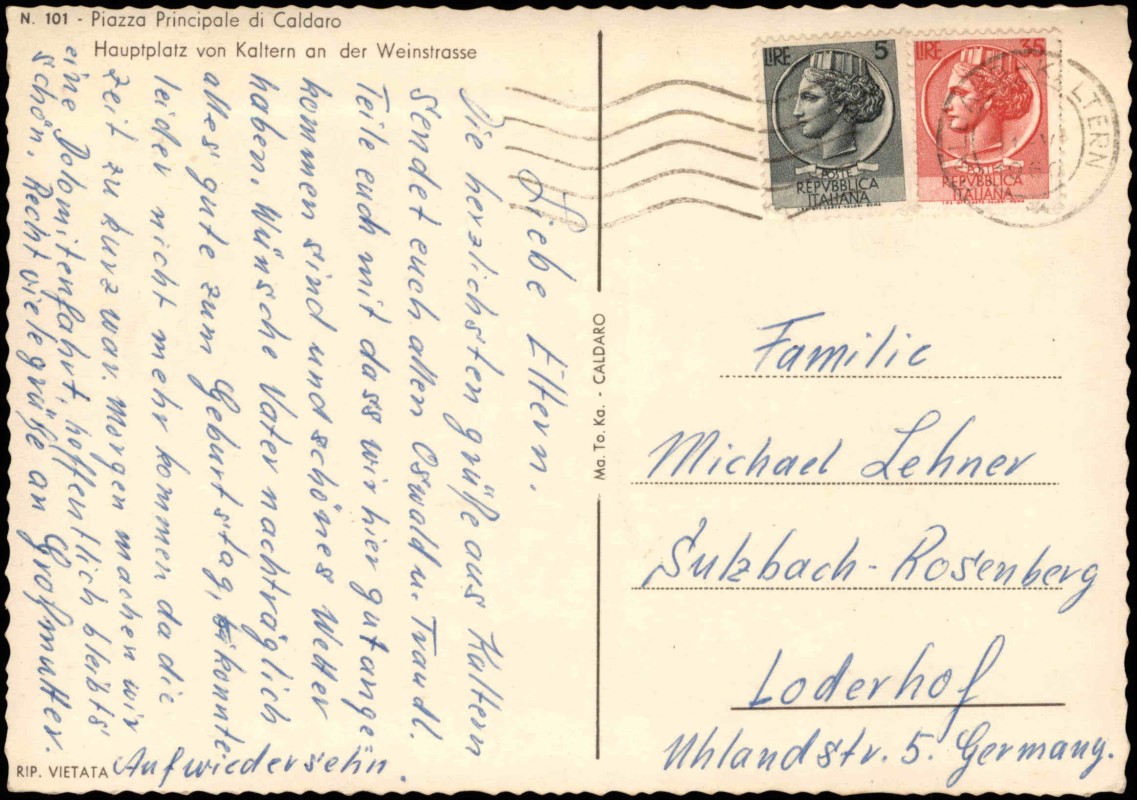 N. 101 - Piazza Principale di Caldaro
Hauptplatz von Kaltern an der Weinstrasse
Liebe Eltern.
Die herzlichsten grüße aus Kaltern
sendet euch allen Oswald u. Traudl.
Teile euch mit dass wir hier gut ange=
kommen sind und schönes Wetter
haben. Wünsche Vater nachträglich
alles gute zum Geburtstag, konnte
leider nicht mehr kommen da die
Zeit zu kurz war. Morgen machen wir
eine Dolomitenfahrt, hoffentlich bleibts
schön. Recht viele grüße an Großmutter.
Auf wiedersehn.
RIP. VIETATA
Ma. To. Ka. - CALDARO
LIRE 5
POSTE
REPVBBLICA
ITALIANA
LIRE 35
REPVBBLICA
ITALIANA
KALTERN
Familie
Michael Lehner
Sulzbach-Rosenberg
Loderhof
Uhlandstr. 5. Germany.